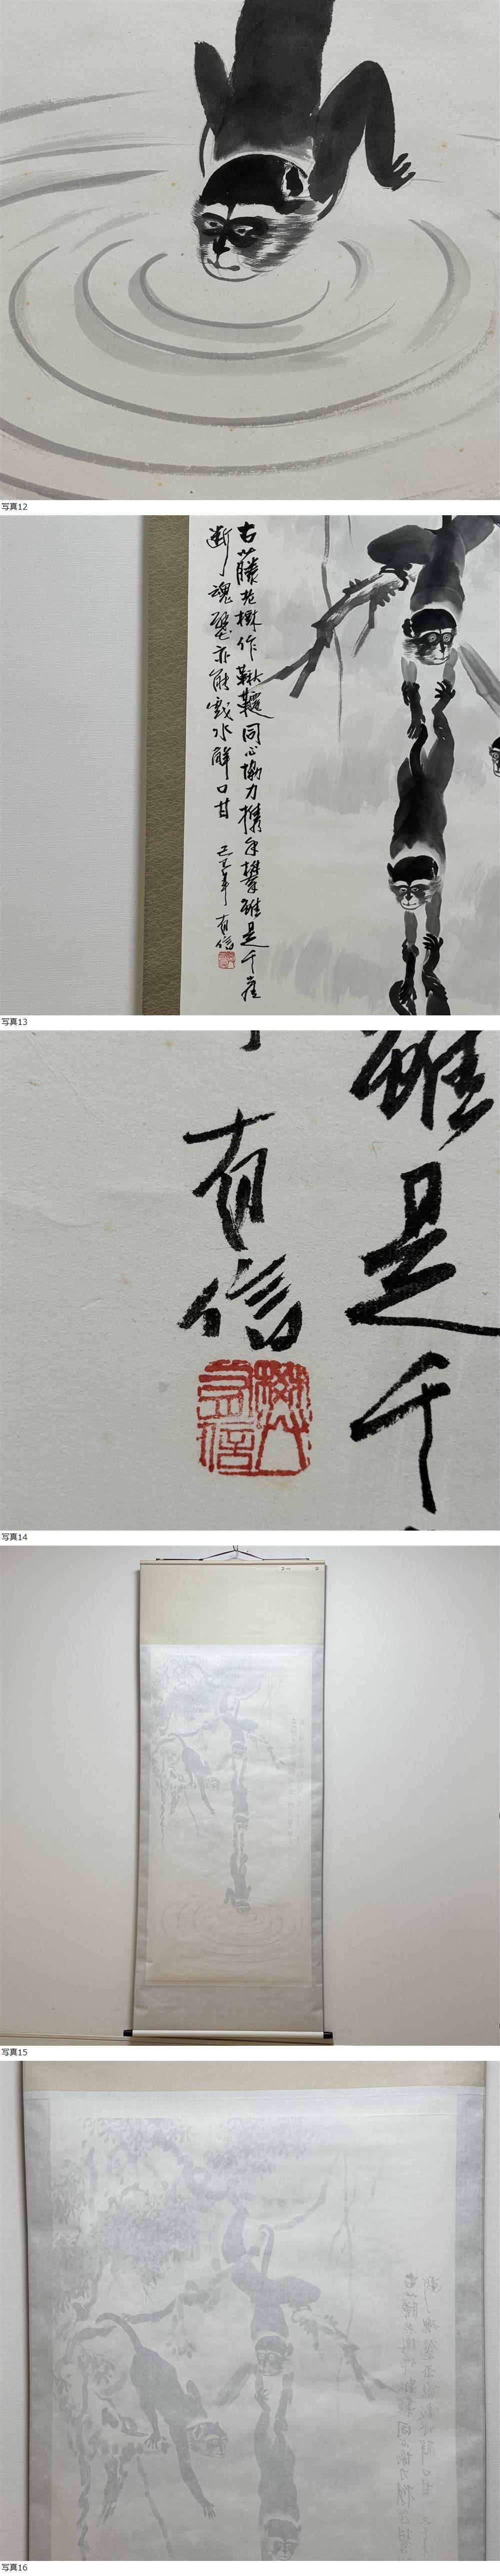 写真12
古藤老樹作鞦韆同心協力攜手攀雖是千崖
断魂壑亦能戲水解口甘
年 有信
写真13
雖是千
有信
写真14
写真15
写真16